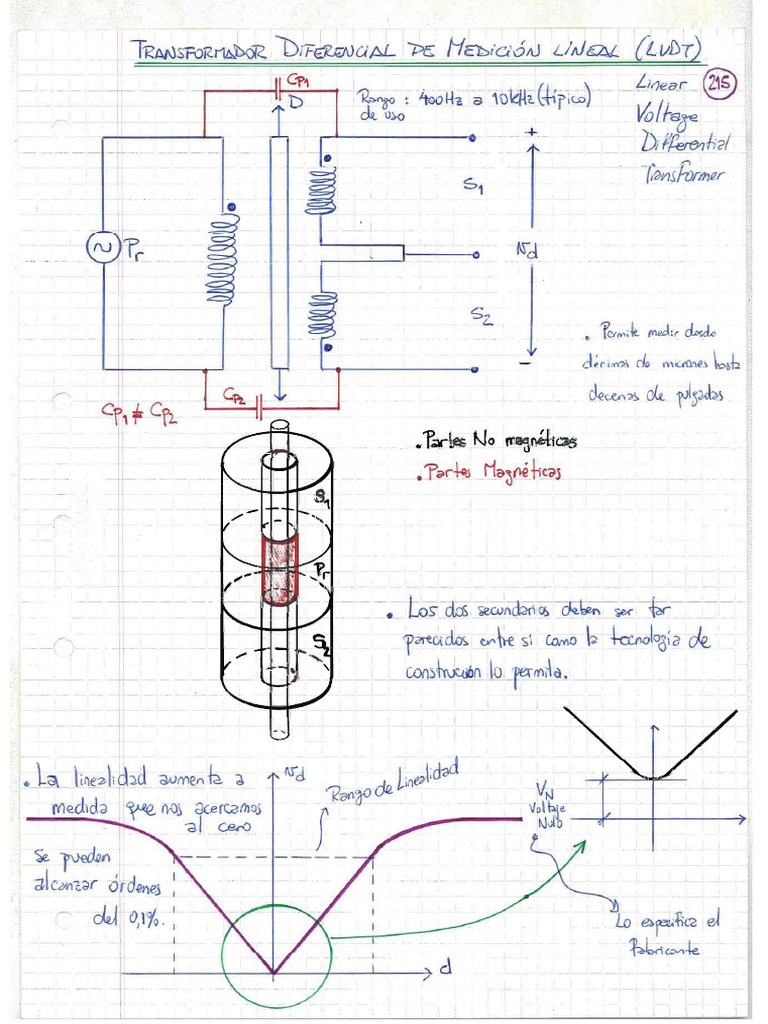 TRANSFORMADOR DIFERENCIAL DE MEDICIÓN LINEAL (LVDT)
Linear
215
Voltage
Differential
Transformer
Cp1
D
Rango : 400Hz a 10kHz (típico)
de uso
+
S1
Pr
Nd
S2
-
Cp2
Cp1 ≠ Cp2
. Permite medir desde
décimas de micrones hasta
decenas de pulgadas
. Partes No magnéticas
. Partes Magnéticas
S1
Pr
S2
• Los dos secundarios deben ser tan
parecidos entre si como la tecnología de
construcción lo permita.
• La linealidad aumenta a
medida que nos acercamos
al cero
Se pueden
alcanzar órdenes
del 0,1%.
Nd
Rango de Linealidad
d
VN
Voltaje
Nulo
Lo especifica el
Fabricante